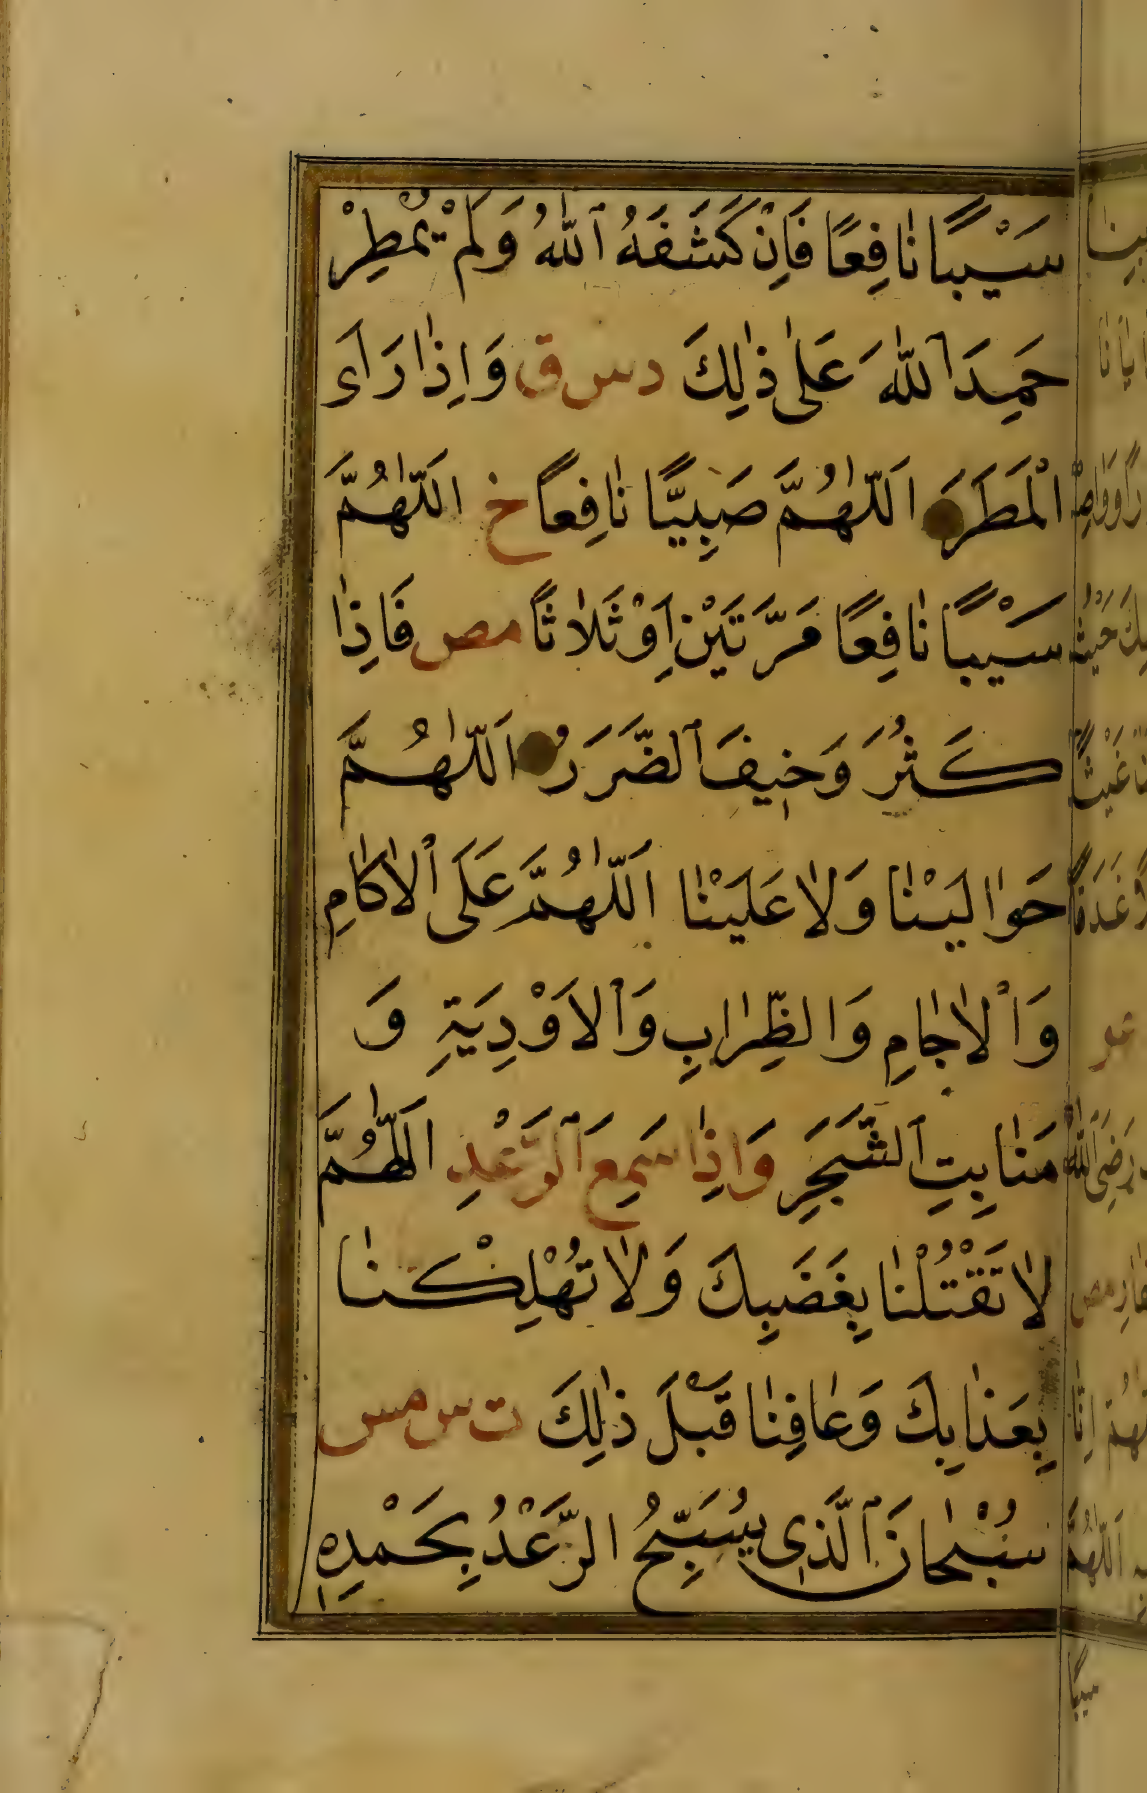 سَيْبًا نَافِعًا فَاِنْ كَشَفَهُ ٱللّٰهُ وَلَمْ يُمْطِرْ
حَمِدَ ٱللّٰهَ عَلٰى ذٰلِكَ د س ق وَاِذَا رَاَى
الْمَطَرَ اَللّٰهُمَّ صَيِّبًا نَافِعًا خ اَللّٰهُمَّ
سَيْبًا نَافِعًا مَرَّتَيْنِ اَوْ ثَلَاثًا مص فَاِذَا
كَثُرَ وَخِيفَ ٱلضَّرَرُ اَللّٰهُمَّ
حَوَالَيْنَا وَلَا عَلَيْنَا اَللّٰهُمَّ عَلَى ٱلْاٰكَامِ
وَٱلْاٰجَامِ وَالظِّرَابِ وَٱلْاَوْدِيَةِ وَ
مَنَابِتِ ٱلشَّجَرِ وَاِذَا سَمِعَ ٱلرَّعْدِ اَللّٰهُمَّ
لَا تَقْتُلْنَا بِغَضَبِكَ وَلَا تُهْلِكْنَا
بِعَذَابِكَ وَعَافِنَا قَبْلَ ذٰلِكَ ت س مس
سُبْحَانَ ٱلَّذِى يُسَبِّحُ الرَّعْدُ بِحَمْدِهِ
سيبا